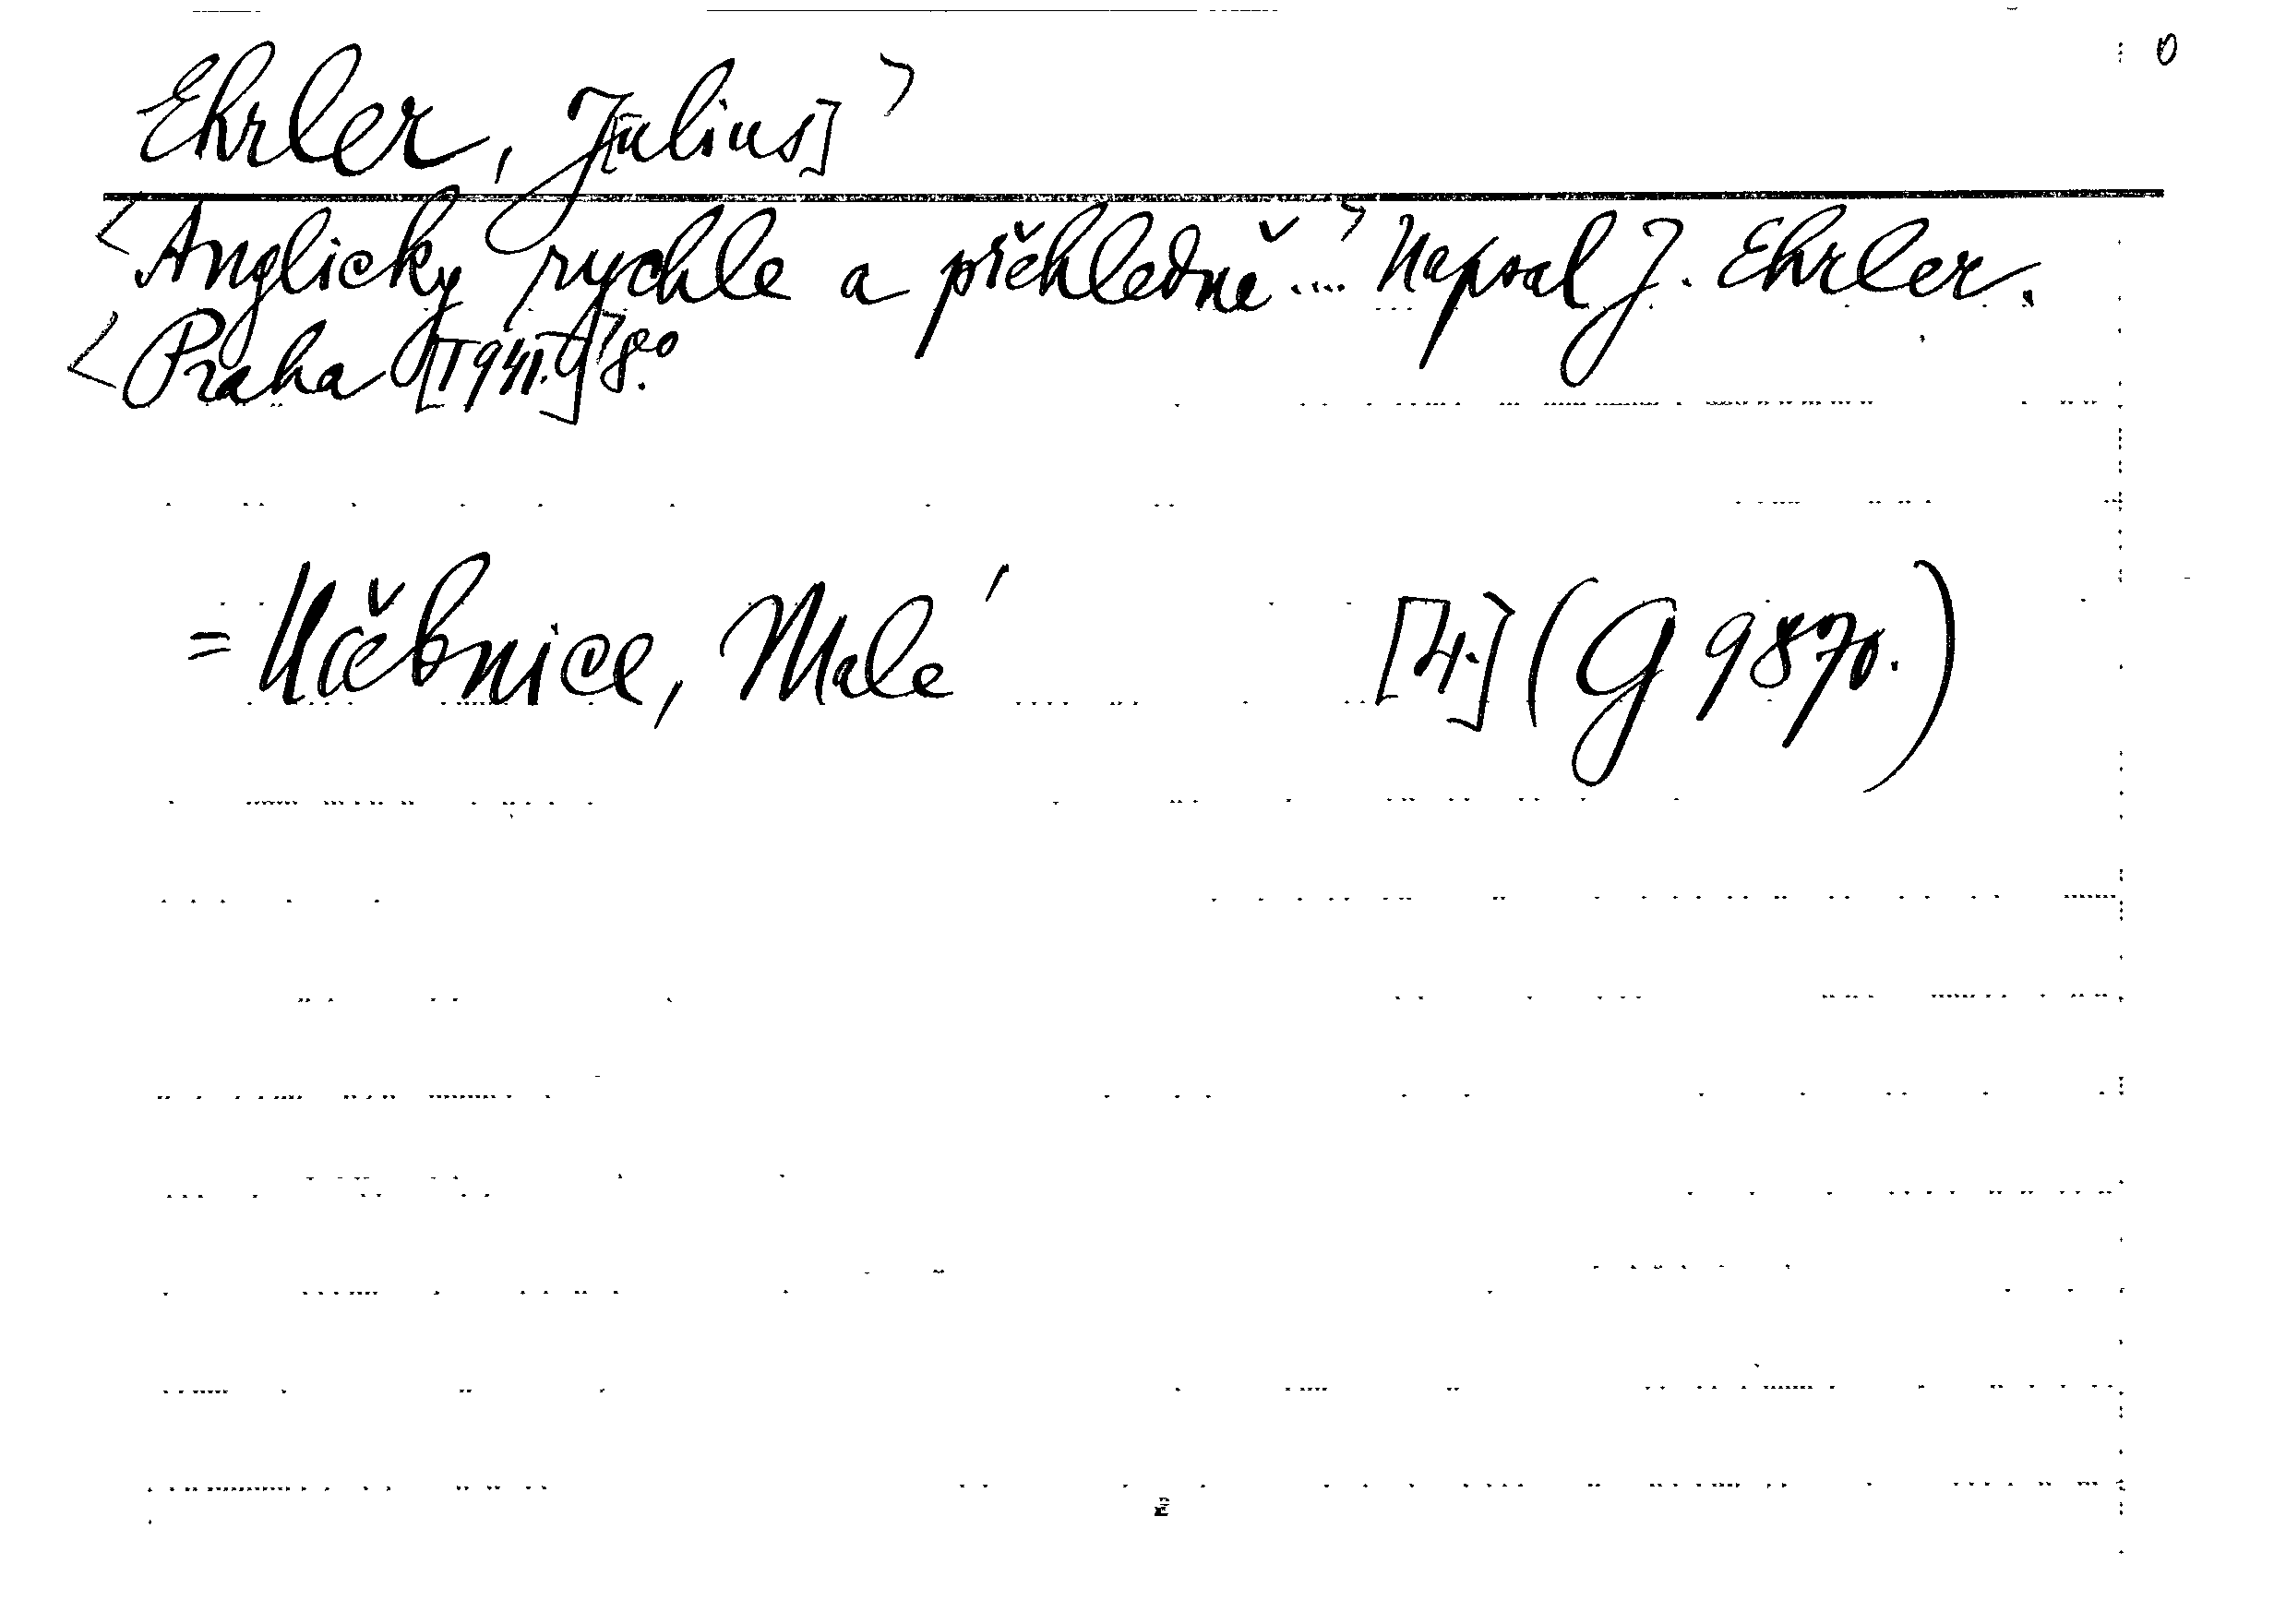 O
Ehrler, J[ulius]>
<Anglicky rychle a přehledně....> Napsal J. Ehrler.
<Praha [1941.]> 8.°
= Učebnice, Malé [4.] (G 9870.)